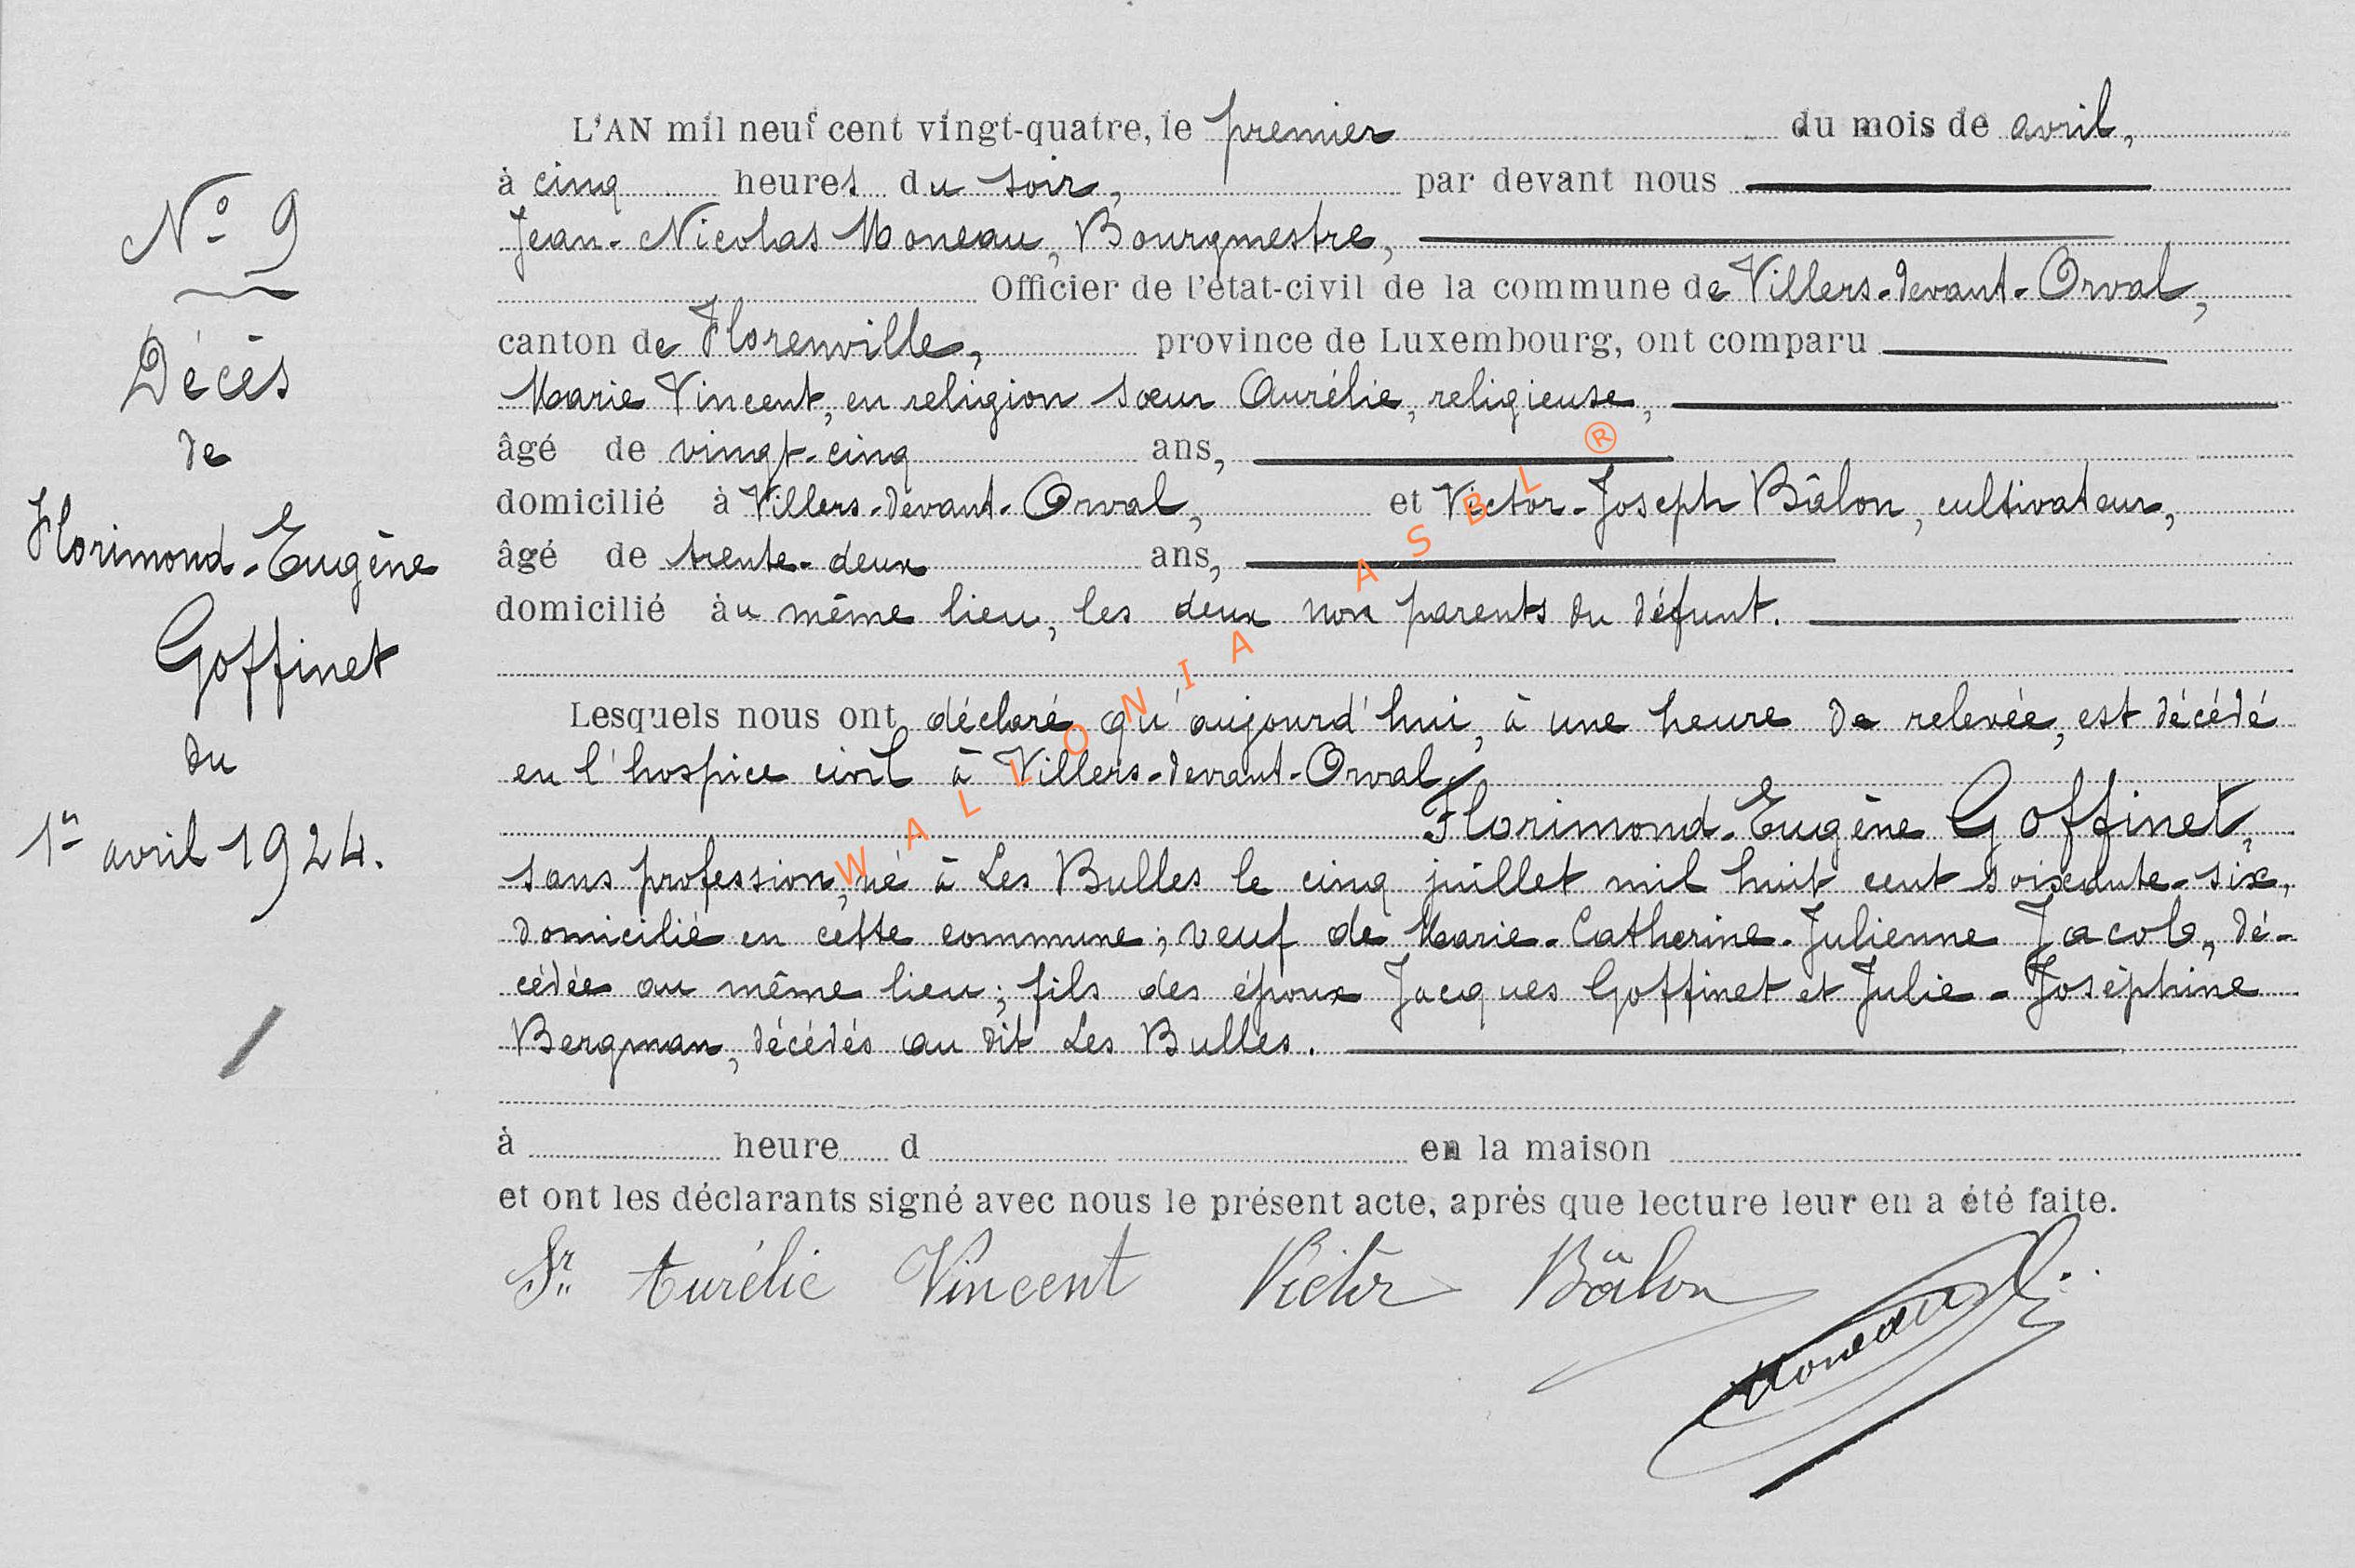 N° 9
Décès
de
Florimond-Eugène
Goffinet
du
1er avril 1924.
L'AN mil neuf cent vingt-quatre, le premier du mois de avril,
à cinq heures du soir, par devant nous
Jean-Nicolas Moneau, Bourgmestre,
Officier de l'état-civil de la commune de Villers-devant-Orval,
canton de Florenville, province de Luxembourg, ont comparu
Marie Vincent, en religion sœur Aurélie, religieuse,
âgé de vingt-cinq ans,
domicilié à Villers-devant-Orval, et Victor-Joseph Bâlon, cultivateur,
âgé de trente-deux ans,
domicilié àu même lieu, les deux non parents du défunt.
Lesquels nous ont déclaré qu'aujourd'hui, à une heure de relevée, est décédé
en l'hospice civil à Villers-devant-Orval,
Florimond-Eugène Goffinet,
sans profession, né à Les Bulles le cinq juillet mil huit cent soixante-six,
domicilié en cette commune; veuf de Marie-Catherine-Julienne Jacob, dé-
cédée au même lieu; fils des époux Jacques Goffinet et Julie-Joséphine
Bergman, décédés au dit Les Bulles.
à heure d en la maison
et ont les déclarants signé avec nous le présent acte, après que lecture leur en a été faite.
Sr Aurélie Vincent Victor Bâlon
Moneau
WALLONIA ASBL ®